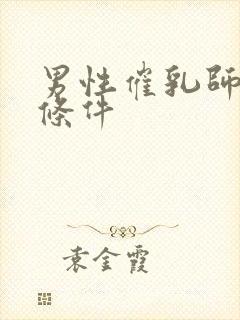 男性催乳師
條件
袁金霞